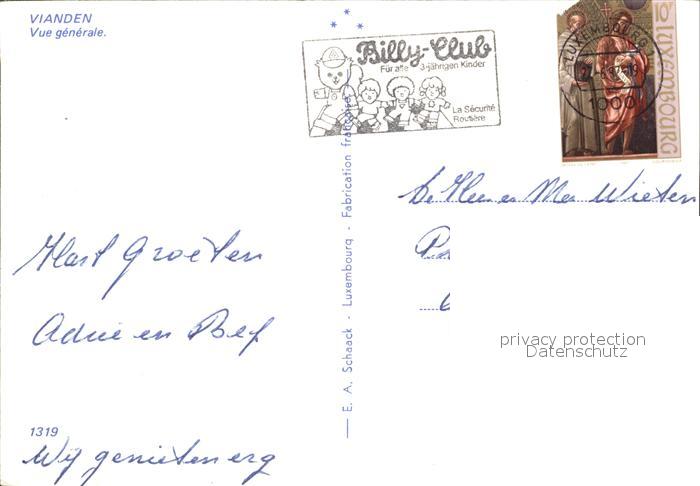 VIANDEN
Vue générale.
Billy-Club
Für alle 3-jährigen Kinder
La Sécurité
Routière
LUXEMBOURG
1000
10F LUXEMBOURG
Hart Groeten
Adrie en Bep
1319
Wij genieten erg
E. A. Schaack - Luxembourg - Fabrication française
Wieten
privacy protection
Datenschutz